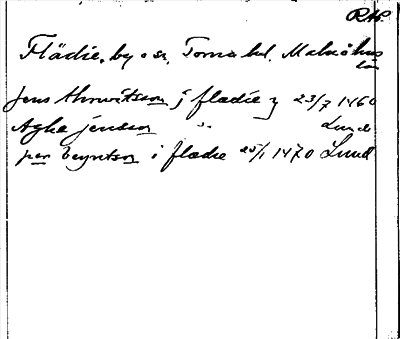 RAp.
Flädie, by o sn, Torna hd, Malmöhus
län
Jens Ahrvitsson j flædie 23/7 1460
Aghe jensson " Lund
per Beyntson i flædie 25/1 1470 Lund